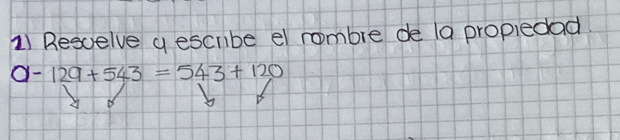 1) Resuelve y escribe el nombre de la propiedad.
a- 129 + 543 = 543 + 120